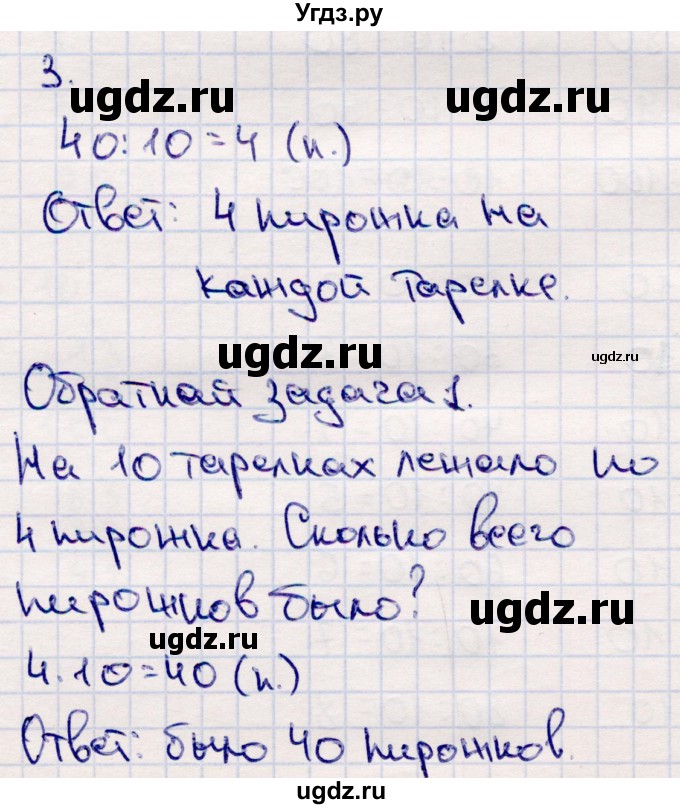 Угдз.ру
3.
ugdz.ru ugdz.ru
40:10=4 (п.)
Ответ: 4 пирожка на
каждой тарелке.
ugdz.ru ugdz.ru
Обратная задача 1.
На 10 тарелках лежало по
4 пирожка. Сколько всего
ugdz.ru
пирожков было?
ugdz.ru
ugdz.ru
4·10=40 (п.)
Ответ: было 40 пирожков.
ugdz.ru
ugdz.ru